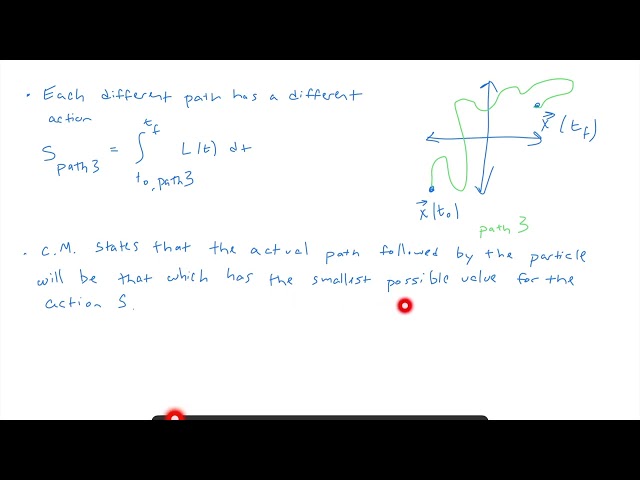 • Each different path has a different
action
S path 3 = ∫ t₀, path 3 t_f L(t) dt
x⃗(t_f)
x⃗(t₀)
path 3
• C.M. states that the actual path followed by the particle
will be that which has the smallest possible value for the
action S.